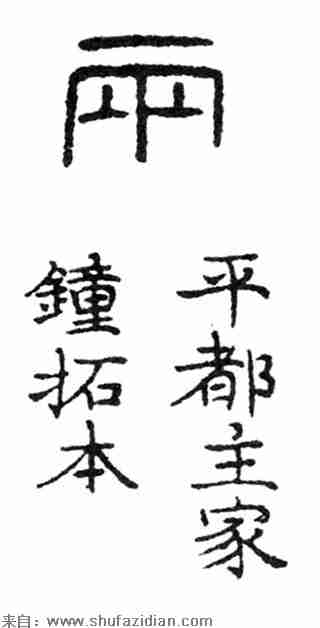 兩
平都主家
鐘拓本
来自：www.shufazidian.com